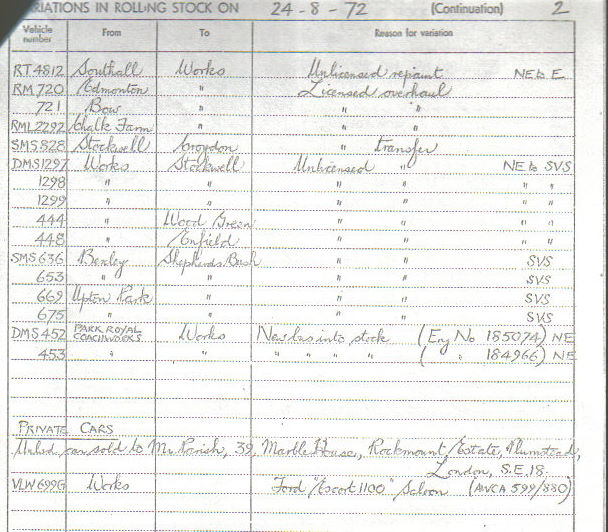 VARIATIONS IN ROLLING STOCK ON 24-8-72 (Continuation) 2
Vehicle number From To Reason for variation
RT 4812 Southall Works Unlicensed repaint NE to E
RM 720 Edmonton " Licensed overhaul
721 Bow " " "
RML 2292 Chalk Farm " " "
SMS 828 Stockwell Croydon " transfer
DMS 1297 Works Stockwell Unlicensed " NE to SVS
1298 " " " " " "
1299 " " " " " "
444 " Wood Green " " " "
448 " Enfield " " " "
SMS 636 Bexley Shepherds Bush " " SVS
653 " " " " SVS
669 Upton Park " " " SVS
675 " " " " SVS
DMS 452 PARK ROYAL COACHWORKS Works New bus into stock (Eng No 185074) NE
453 " " " " " " ( " " 184966) NE
PRIVATE CARS
car sold to Mr. Parish, 39, Marble House, Rockmount Estate, Plumstead,
London, S.E.18.
VLW 699G Works Ford "Escort 1100" Saloon (AWCA 599/880)